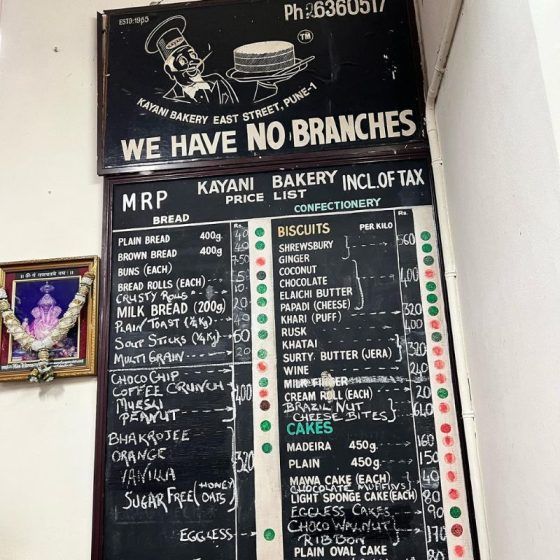 ESTD:1955
Ph 26360517
TM
KAYANI BAKERY EAST STREET, PUNE-1
WE HAVE NO BRANCHES
KAYANI BAKERY
MRP PRICE LIST INCL.OF TAX
BREAD Rs.
PLAIN BREAD 400g. 40
BROWN BREAD 400g. 40
BUNS (EACH) 7.50
BREAD ROLLS (EACH) 5
CRUSTY ROLLS 10
MILK BREAD (200g) 20
PLAIN TOAST (¼kg) 40
SOUP STICKS (¼kg) 60
MULTI GRAIN 20
CHOCO CHIP
COFFEE CRUNCH
MUESLI
PEANUT
400
BHAKROJEE
ORANGE
VANILLA
SUGAR FREE (HONEY OATS)
320
EGGLESS
CONFECTIONERY
BISCUITS PER KILO Rs.
SHREWSBURY 560
GINGER
COCONUT
CHOCOLATE
ELAICHI BUTTER
PAPADI (CHEESE)
400
KHARI (PUFF) 320
RUSK 400
KHATAI
SURTY. BUTTER (JERA)
320
WINE 240
MILK FINGER
CREAM ROLL (EACH) 20
BRAZIL NUT
CHEESE BITES
640
CAKES
MADEIRA 450g. 160
PLAIN 450g. 150
MAWA CAKE (EACH)
CHOCOLATE MUFFINS
LIGHT SPONGE CAKE (EACH) 80
EGGLESS CAKES 90
CHOCO WALNUT 170
RIBBON
PLAIN OVAL CAKE